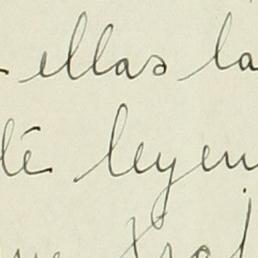 ellas la
té leyen